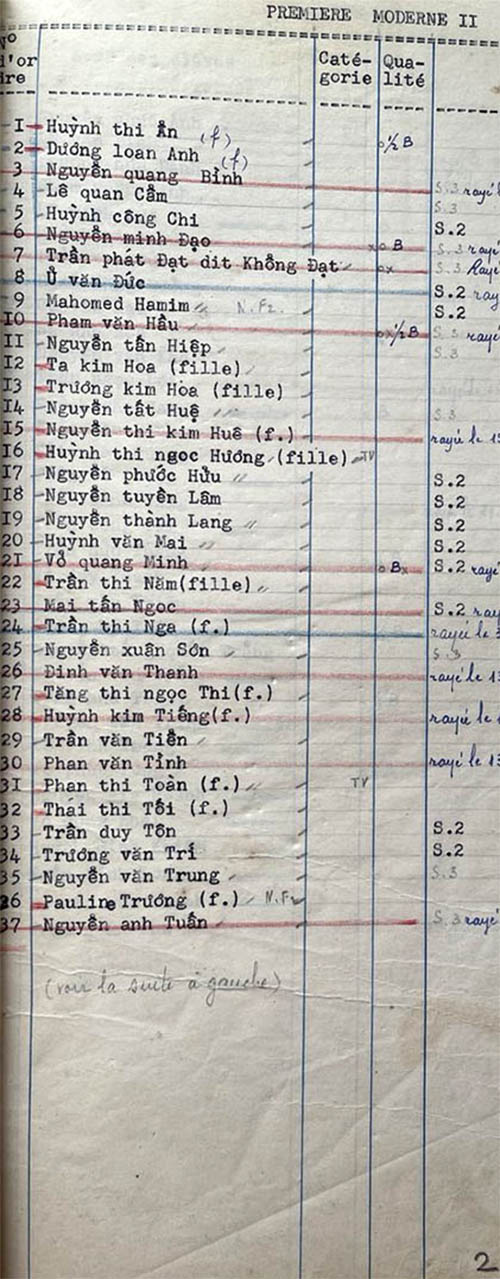 PREMIERE MODERNE II
No d'or ire Caté- gorie Qua- lité
1 Huỳnh thi Ẩn (f) o ½ B
2 Dương loan Anh (f)
3 Nguyễn quang Bỉnh S.3 rayé
4 Lê quan Cẩm S.3
5 Huỳnh công Chi S.2
6 Nguyễn minh Đạo xo B S.3 rayé
7 Trần phát Đạt dit Khổng Đạt ox S.3 Rayé
8 Ŭ văn Đức S.2 ray
9 Mahomed Hamim N.Fr. S.2
IO Pham văn Hầu ox½B S.3 rayé
II Nguyễn tấn Hiệp S.3
I2 Ta kim Hoa (fille)
I3 Trương kim Hoa (fille)
I4 Nguyễn tất Huệ S.3
I5 Nguyễn thi kim Huê (f.) rayée le 13
I6 Huỳnh thi ngọc Hương (fille) TV
I7 Nguyễn phước Hữu S.2
I8 Nguyễn tuyền Lâm S.2
I9 Nguyễn thành Lang S.2
20 Huỳnh văn Mai S.2
2I Vỏ quang Minh o Bx S.2 rayé
22 Trần thi Năm(fille)
23 Mai tấn Ngọc S.2 ray
24 Trần thi Nga (f.) rayée le
25 Nguyễn xuân Sơn S.3
26 Đinh văn Thanh rayé le 13
27 Tăng thi ngọc Thi(f.)
28 Huỳnh kim Tiếng(f.) rayé le
29 Trần văn Tiễn
30 Phan văn Tỉnh rayé le 13
3I Phan thi Toàn (f.) TV
32 Thái thi Tối (f.)
33 Trần duy Tôn S.2
34 Trương văn Trí S.2
35 Nguyễn văn Trung S.3
36 Pauline Trương (f.) N.Fr
37 Nguyễn anh Tuấn S.3 rayé
(voir la suite à gauche)
2